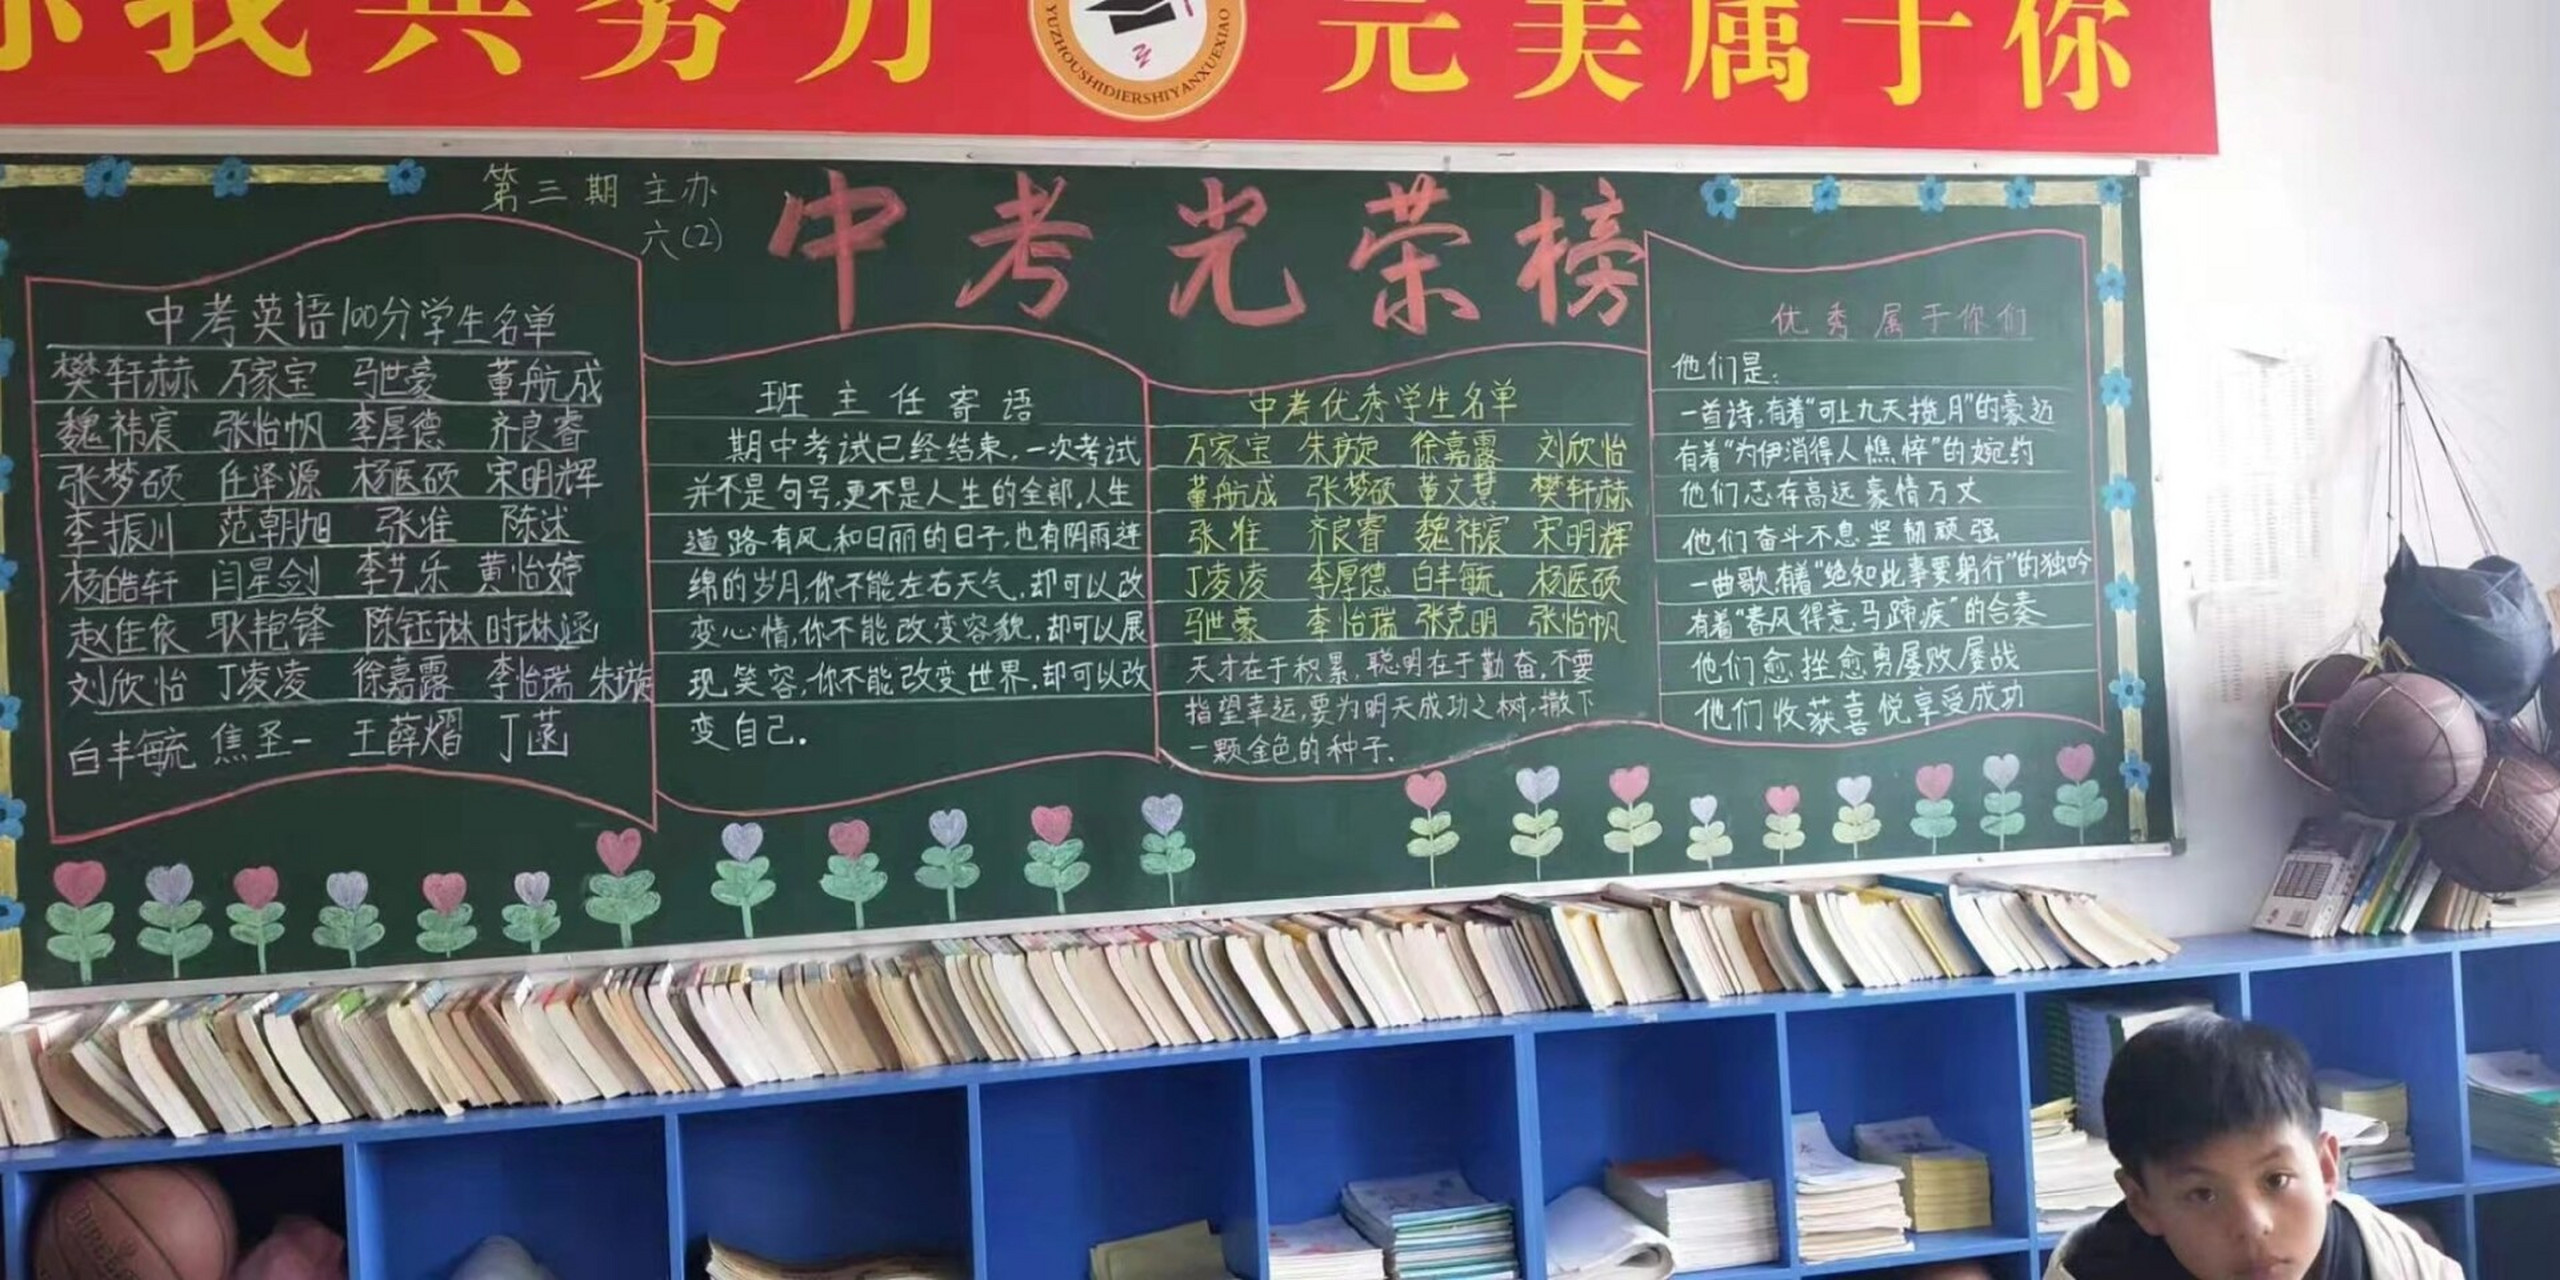 你我共努力 完美属于你
YUZHOUSHIDIERSHIYANXUEXIAO
第三期 主办
六(2)
中考光荣榜
中考英语100分学生名单
樊轩赫 万家宝 马世豪 董航成
魏祎宸 张怡帆 李厚德 齐良睿
张梦硕 任泽源 杨医硕 宋明辉
李振川 范朝旭 张准 陈述
杨皓轩 闫星剑 李艺乐 黄怡婷
赵佳依 耿艳锋 陈钰琳 时琳涵
刘欣怡 丁凌凌 徐嘉露 李怡瑞 朱璇
白丰毓 焦圣一 王薛熠 丁菡
班主任寄语
期中考试已经结束,一次考试
并不是句号,更不是人生的全部,人生
道路有风和日丽的日子,也有阴雨连
绵的岁月,你不能左右天气,却可以改
变心情,你不能改变容貌,却可以展
现笑容,你不能改变世界,却可以改
变自己.
中考优秀学生名单
万家宝 朱璇 徐嘉露 刘欣怡
董航成 张梦硕 董文慧 樊轩赫
张准 齐良睿 魏祎宸 宋明辉
丁凌凌 李厚德 白丰毓 杨医硕
马世豪 李怡瑞 张克明 张怡帆
天才在于积累,聪明在于勤奋,不要
指望幸运,要为明天成功之树,撒下
一颗金色的种子.
优秀属于你们
他们是:
一首诗,有着“可上九天揽月”的豪迈
有着“为伊消得人憔悴”的婉约
他们志存高远豪情万丈
他们奋斗不息坚韧顽强
一曲歌,有着“绝知此事要躬行”的独吟
有着“春风得意马蹄疾”的合奏
他们愈挫愈勇屡败屡战
他们收获喜悦享受成功